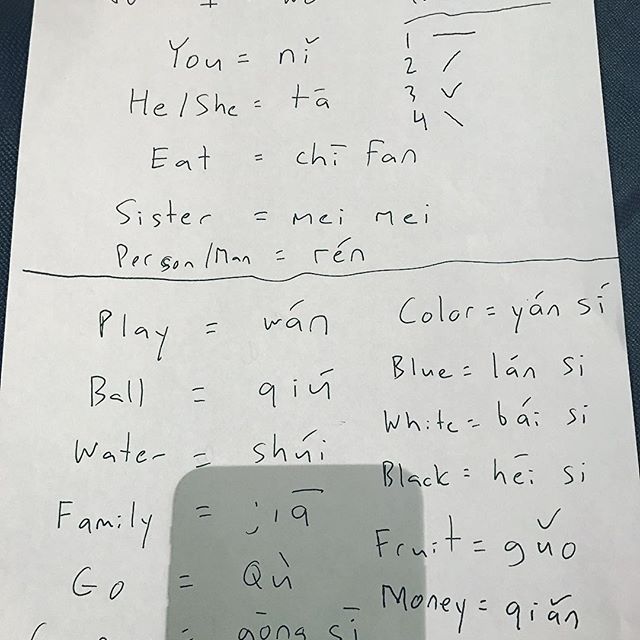 You = nǐ
He/She = tā
Eat = chī fan
Sister = mei mei
Person/Man = rén
1 —
2 /
3 ✓
4 \
Play = wán
Ball = qiú
Water = shúi
Family = jiā
Go = Qù
= gōng sī
Color = yán sí
Blue = lán si
White = bái si
Black = hēi si
Fruit = gǔo
Money = qiǎn